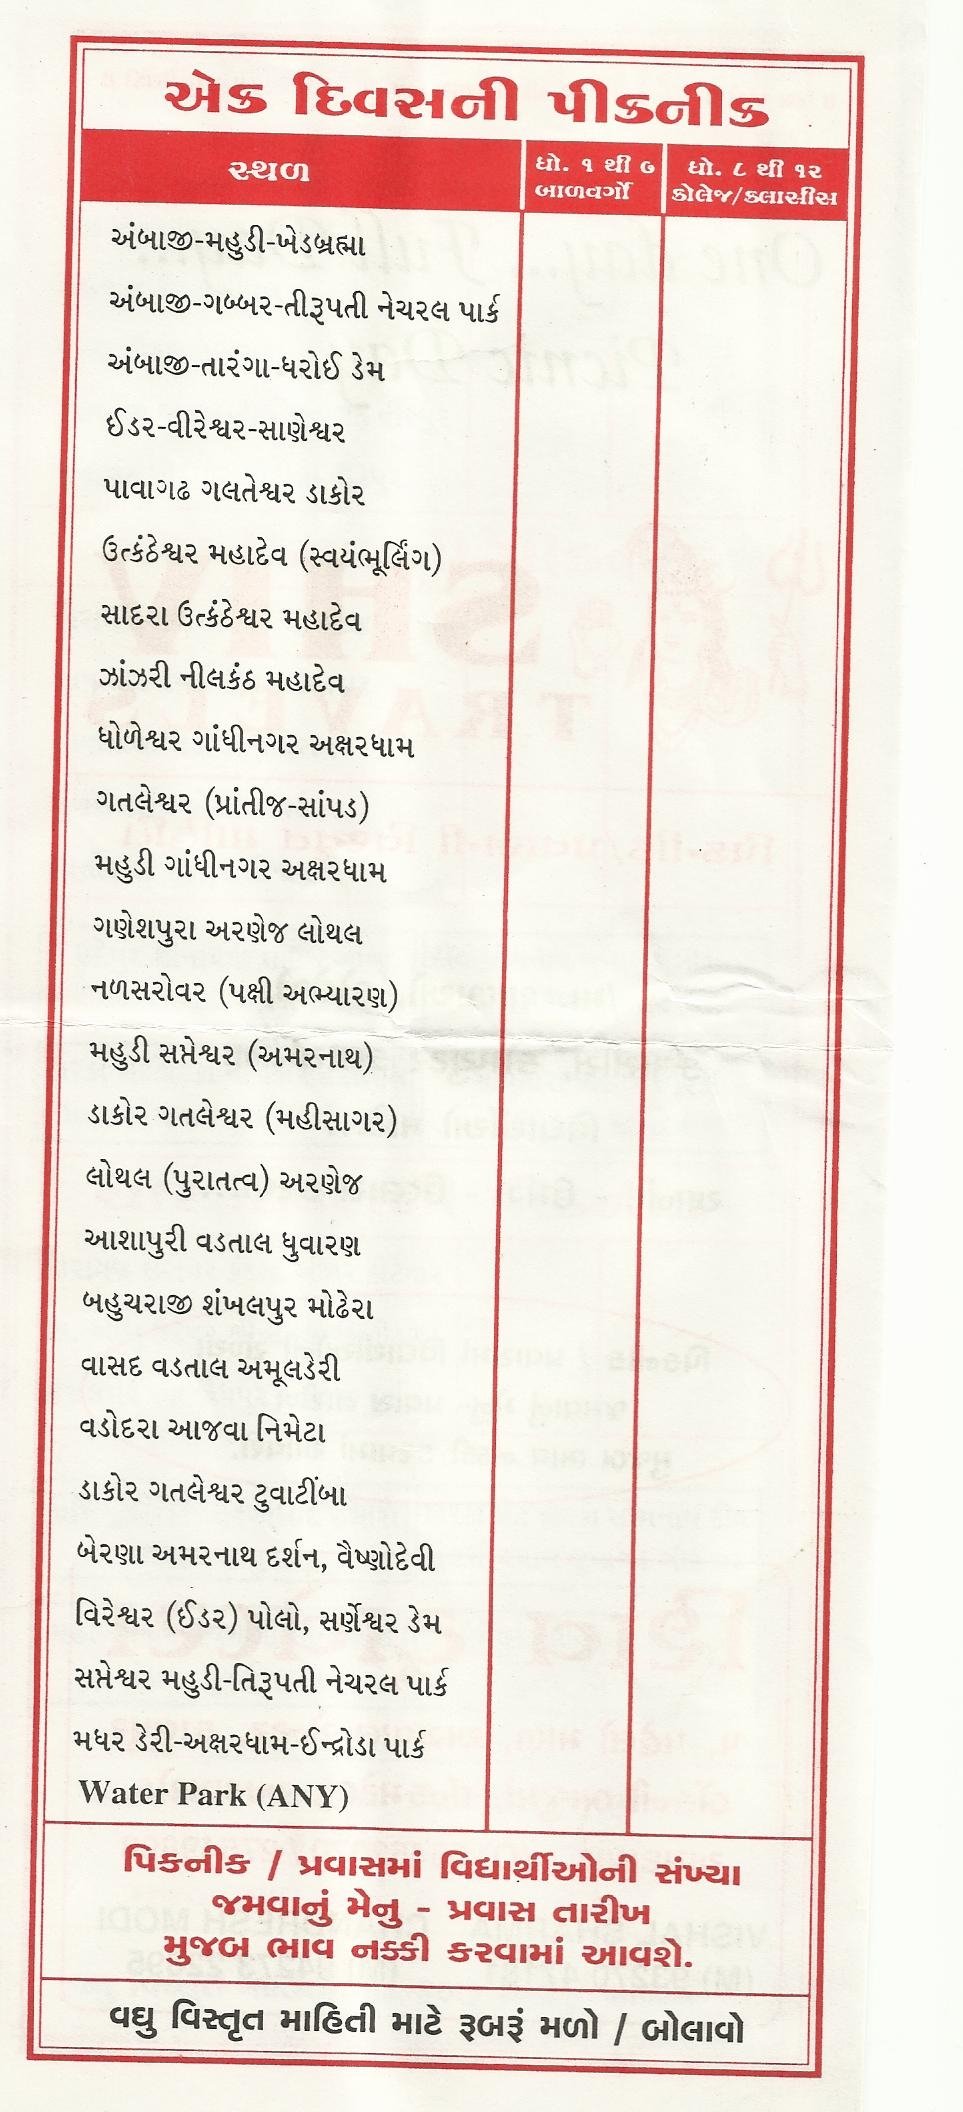 એક દિવસની પીકનીક
સ્થળ
ધો. ૧ થી ૭
બાળવર્ગો
ધો. ૮ થી ૧૨
કોલેજ/ક્લાસીસ
અંબાજી-મહુડી-ખેડબ્રહ્મા
અંબાજી-ગબ્બર-તીરૂપતી નેચરલ પાર્ક
અંબાજી-તારંગા-ધરોઈ ડેમ
ઈડર-વીરેશ્વર-સાણેશ્વર
પાવાગઢ ગલતેશ્વર ડાકોર
ઉત્કંઠેશ્વર મહાદેવ (સ્વયંભૂલિંગ)
સાદરા ઉત્કંઠેશ્વર મહાદેવ
ઝાંઝરી નીલકંઠ મહાદેવ
ધોળેશ્વર ગાંધીનગર અક્ષરધામ
ગતલેશ્વર (પ્રાંતીજ-સાંપડ)
મહુડી ગાંધીનગર અક્ષરધામ
ગણેશપુરા અરણેજ લોથલ
નળસરોવર (પક્ષી અભ્યારણ)
મહુડી સપ્તેશ્વર (અમરનાથ)
ડાકોર ગતલેશ્વર (મહીસાગર)
લોથલ (પુરાતત્વ) અરણેજ
આશાપુરી વડતાલ ધુવારણ
બહુચરાજી શંખલપુર મોઢેરા
વાસદ વડતાલ અમૂલડેરી
વડોદરા આજવા નિમેટા
ડાકોર ગતલેશ્વર ટુવાટીંબા
બેરણા અમરનાથ દર્શન, વૈષ્ણોદેવી
વિરેશ્વર (ઈડર) પોલો, સર્ણેશ્વર ડેમ
સપ્તેશ્વર મહુડી-તિરૂપતી નેચરલ પાર્ક
મધર ડેરી-અક્ષરધામ-ઈન્દ્રોડા પાર્ક
Water Park (ANY)
પિકનીક / પ્રવાસમાં વિદ્યાર્થીઓની સંખ્યા
જમવાનું મેનુ - પ્રવાસ તારીખ
મુજબ ભાવ નક્કી કરવામાં આવશે.
વધુ વિસ્તૃત માહિતી માટે રૂબરૂં મળો / બોલાવો